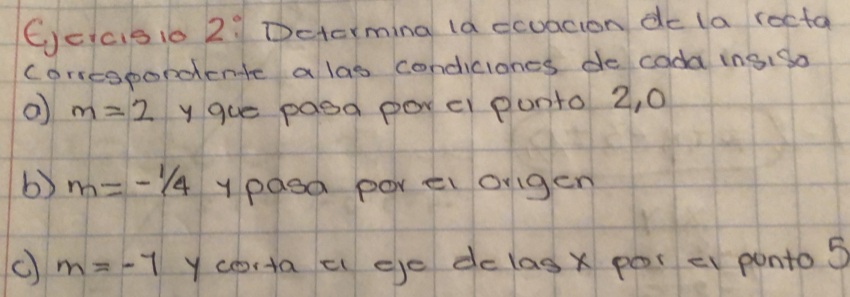 Ejercisio 2: Determina la ecuacion de la recta
correspondente a las condiciones de cada insiso
a) m=2 y que pasa por el punto 2,0
b) m=-1/4 y pasa por el origen
c) m=-1 y corta el eje de las x por el punto 5